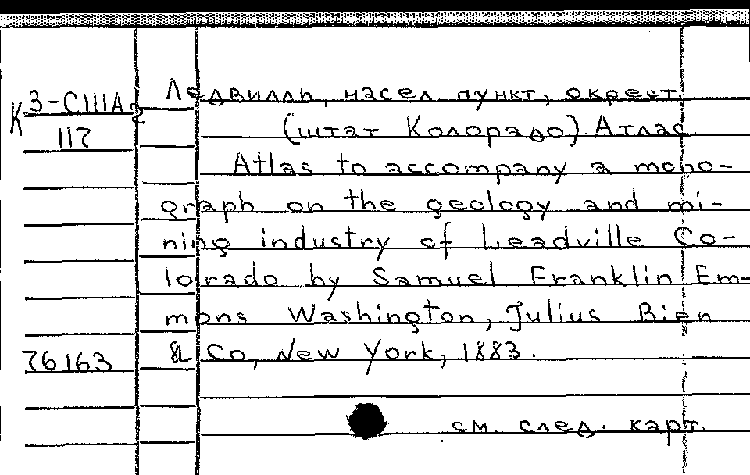 Ледвилль, насел пункт, окрест
К 3-СШАг
117
(штат Колорадо) Атлас
Atlas to accompany a mono-
graph on the geology and mi-
ning industry of Leadville Co-
lorado by Samuel Franklin Em-
mons Washington, Julius Bien
76163
& Co, New York, 1883.
см. след. карт.